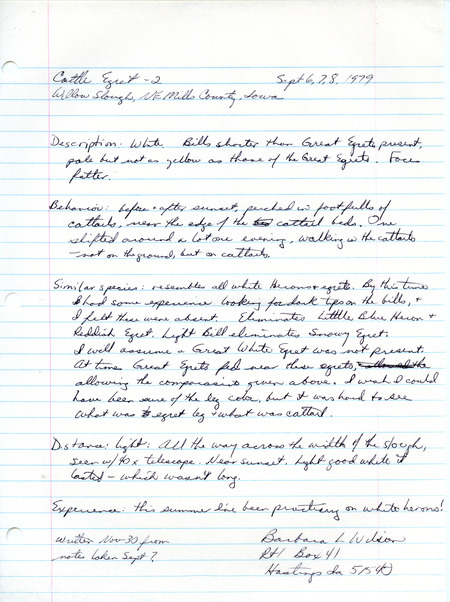 Cattle Egret - 2 Sept 6, 7, 8, 1979
Willow Slough, NE Mills County, Iowa
Description: White Bills shorter than Great Egrets present,
pale but not as yellow as those of the Great Egrets. Face
fatter.
Behavior: before + after sunset, perched in footfulls of
cattails, near the edge of the cattail beds. One
shifted around a lot one evening, walking in the cattails
- not on the ground, but on cattails.
Similar species: resembles all white Herons + egrets. By this time
I had some experience looking for dark tips on the bills, +
I felt these were absent. Eliminates Little Blue Heron +
Reddish Egret. Light Bill eliminates Snowy Egret.
I will assume a Great White Egret was not present.
At times Great Egrets fed near these egrets,
allowing the comparisons given above. I wish I could
have been sure of the leg color, but it was hard to see
what was egret leg + what was cattail.
Distance; light: All the way across the width of the slough,
seen w/ 40x telescope. Near sunset. Light good while it
lasted - which wasn't long.
Experience: this summer I've been practicing on white herons!
written Nov 30 from Barbara L Wilson
notes taken Sept 7. Rt 1 Box 41
Hastings Ia 51540